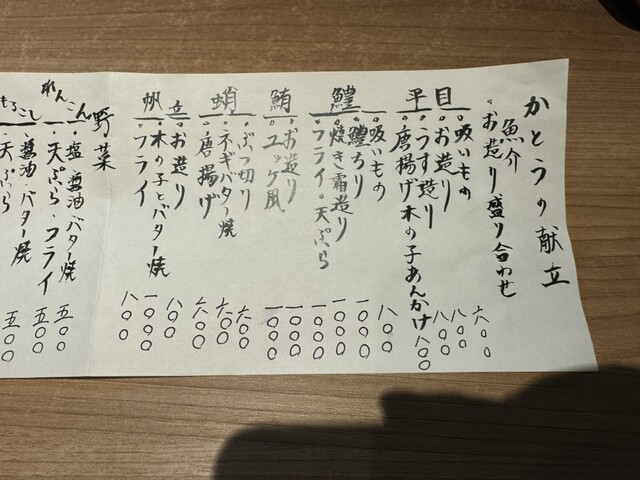 かとうの献立
魚介
・お造り盛り合わせ
平目
・吸いもの 六〇〇
・お造り 八〇〇
・うす造り 八〇〇
・唐揚げ木の子あんかけ 八〇〇
鱧
・吸いもの 八〇〇
・鱧ちり 一〇〇〇
・焼き霜造り 一〇〇〇
・フライ。天ぷら 一〇〇〇
鮪
・お造り 一〇〇〇
・ユッケ風 一〇〇〇
蛸
・ぶつ切り 六〇〇
・ネギバター焼 六〇〇
・唐揚げ 六〇〇
帆立
・お造り 八〇〇
・木の子とバター焼 一〇〇〇
・フライ 八〇〇
野菜
れんこん
・塩・醤油バター焼 五〇〇
・天ぷら・フライ 五〇〇
もろこし
・醤油・バター焼 五〇〇
・天ぷら